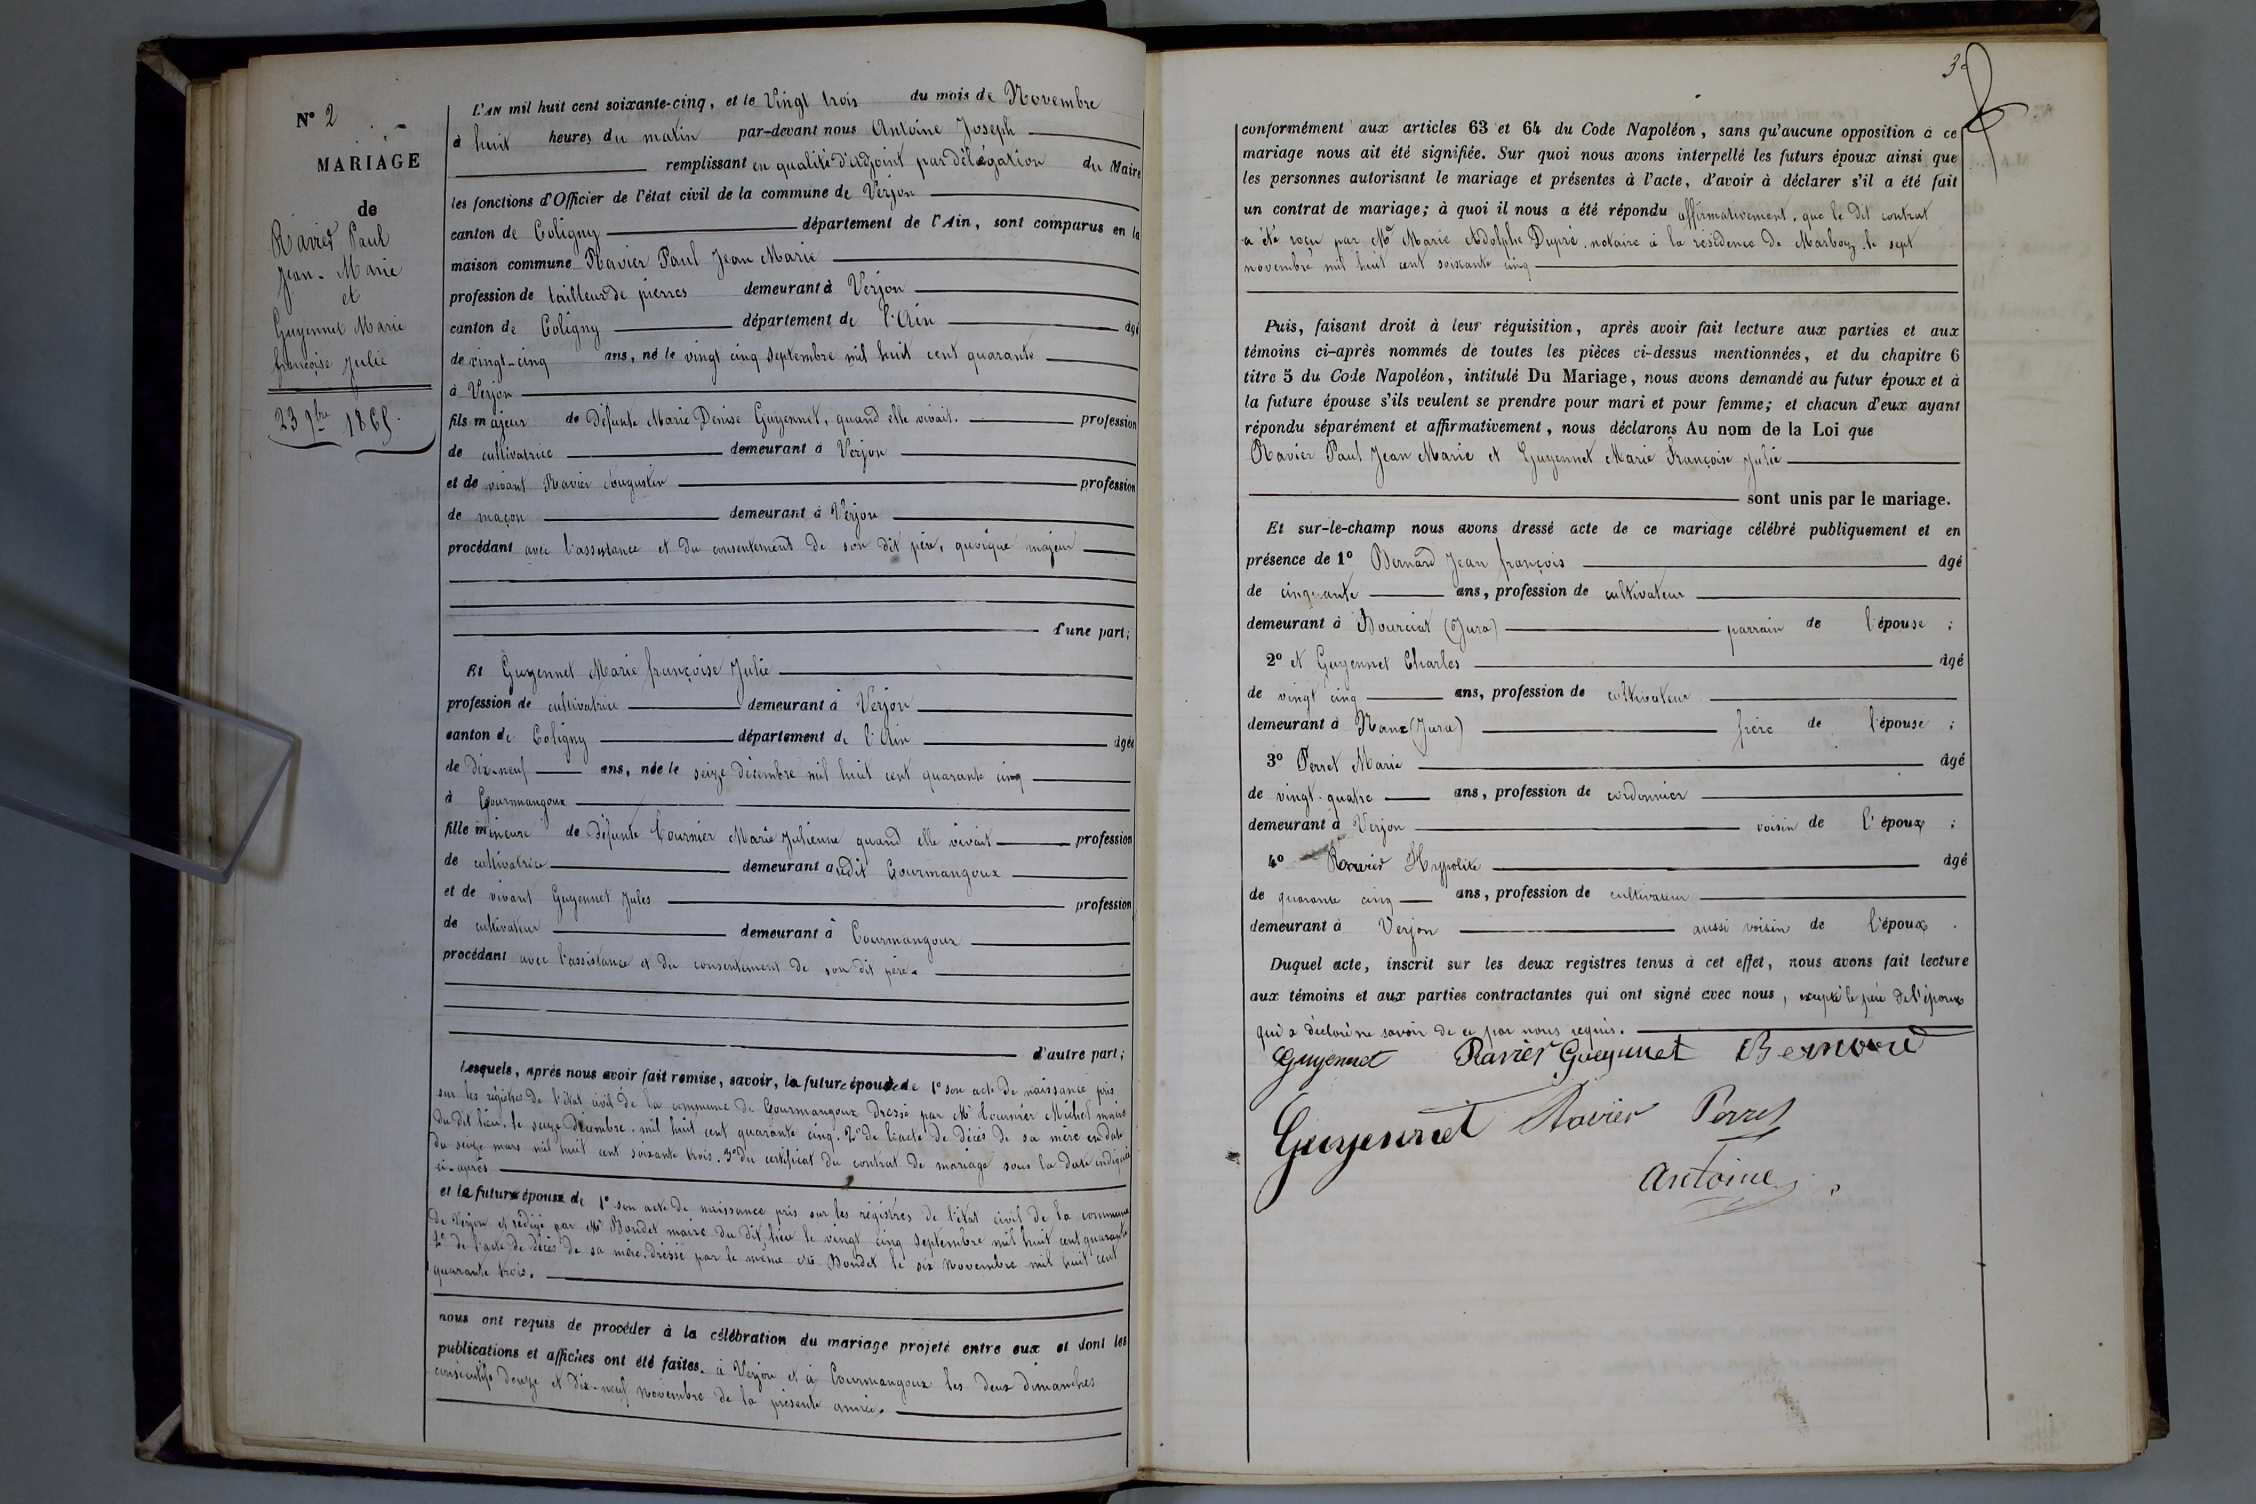 N° 2
MARIAGE
de
Ravier Paul
Jean-Marie
et
Guyennet Marie
françoise Julie
23 9bre 1865.
L'AN mil huit cent soixante-cinq, et le Vingt trois du mois de Novembre
à huit heures du matin par-devant nous Antoine Joseph
remplissant en qualité d'adjoint par délégation du Maire
les fonctions d'Officier de l'état civil de la commune de Verjon
canton de Coligny département de l'Ain, sont comparus en la
maison commune Ravier Paul Jean Marie
profession de tailleur de pierres demeurant à Verjon
canton de Coligny département de l'Ain âgé
de vingt-cinq ans, né le vingt cinq septembre mil huit cent quarante
à Verjon
fils majeur de défunte Marie Denise Guyennet, quand elle vivait. profession
de cultivatrice demeurant à Verjon
et de vivant Ravier Augustin profession
de maçon demeurant à Verjon
procédant avec l'assistance et du consentement de son dit père, quoique majeur
d'une part;
Et Guyennet Marie françoise Julie
profession de cultivatrice demeurant à Verjon
canton de Coligny département de l'Ain âgée
de dix-neuf ans, née le seize décembre mil huit cent quarante cinq
à Courmangoux
fille mineure de défunte Cournier Marie Julienne quand elle vivait profession
de cultivatrice demeurant audit Courmangoux
et de vivant Guyennet Jules profession
de cultivateur demeurant à Courmangoux
procédant avec l'assistance et du consentement de son dit père.
d'autre part;
Lesquels, après nous avoir fait remise, savoir, la future épouse de 1° son acte de naissance pris
sur les régistres de l'état civil de la commune de Courmangoux dressé par Mr Cournier Michel maire
du dit lieu, le seize décembre mil huit cent quarante cinq. 2° de l'acte de décès de sa mère en date
du seize mars mil huit cent soixante trois. 3° du certificat du contrat de mariage sous la date indiquée
ci-après
et le futur époux de 1° son acte de naissance pris sur les régistres de l'état civil de la commune
de Verjon et rédigé par Mr Bondet maire du dit lieu le vingt cinq septembre mil huit cent quarante
2° de l'acte de décès de sa mère, dressé par le même Mr Bondet le six novembre mil huit cent
quarante trois.
nous ont requis de procéder à la célébration du mariage projeté entre eux et dont les
publications et affiches ont été faites. à Verjon et à Courmangoux les deux dimanches
consécutifs douze et dix-neuf novembre de la présente année.
3
conformément aux articles 63 et 64 du Code Napoléon, sans qu'aucune opposition à ce
mariage nous ait été signifiée. Sur quoi nous avons interpellé les futurs époux ainsi que
les personnes autorisant le mariage et présentes à l'acte, d'avoir à déclarer s'il a été fait
un contrat de mariage; à quoi il nous a été répondu affirmativement, que le dit contrat
a été reçu par Me Marie Adolphe Dupré, notaire à la résidence de Marboz, le sept
novembre mil huit cent soixante cinq
Puis, faisant droit à leur réquisition, après avoir fait lecture aux parties et aux
témoins ci-après nommés de toutes les pièces ci-dessus mentionnées, et du chapitre 6
titre 5 du Code Napoléon, intitulé Du Mariage, nous avons demandé au futur époux et à
la future épouse s'ils veulent se prendre pour mari et pour femme; et chacun d'eux ayant
répondu séparément et affirmativement, nous déclarons Au nom de la Loi que
Ravier Paul Jean Marie et Guyennet Marie Françoise Julie
sont unis par le mariage.
Et sur-le-champ nous avons dressé acte de ce mariage célébré publiquement et en
présence de 1° Bernard Jean françois âgé
de cinquante ans, profession de cultivateur
demeurant à Bourciat (Jura) parrain de l'épouse ;
2° et Guyennet Charles âgé
de vingt cinq ans, profession de cultivateur
demeurant à Nanc (Jura) frère de l'épouse ;
3° Perret Marie âgé
de vingt-quatre ans, profession de cordonnier
demeurant à Verjon voisin de l'époux ;
4° Ravier Hyppolite âgé
de quarante cinq ans, profession de cultivateur
demeurant à Verjon aussi voisin de l'époux .
Duquel acte, inscrit sur les deux registres tenus à cet effet, nous avons fait lecture
aux témoins et aux parties contractantes qui ont signé avec nous, excepté le père de l'époux
qui a déclaré ne savoir de ce par nous requis.
Guyennet Ravier Guyennet Bernard
Guyennet Ravier Perret
Antoine